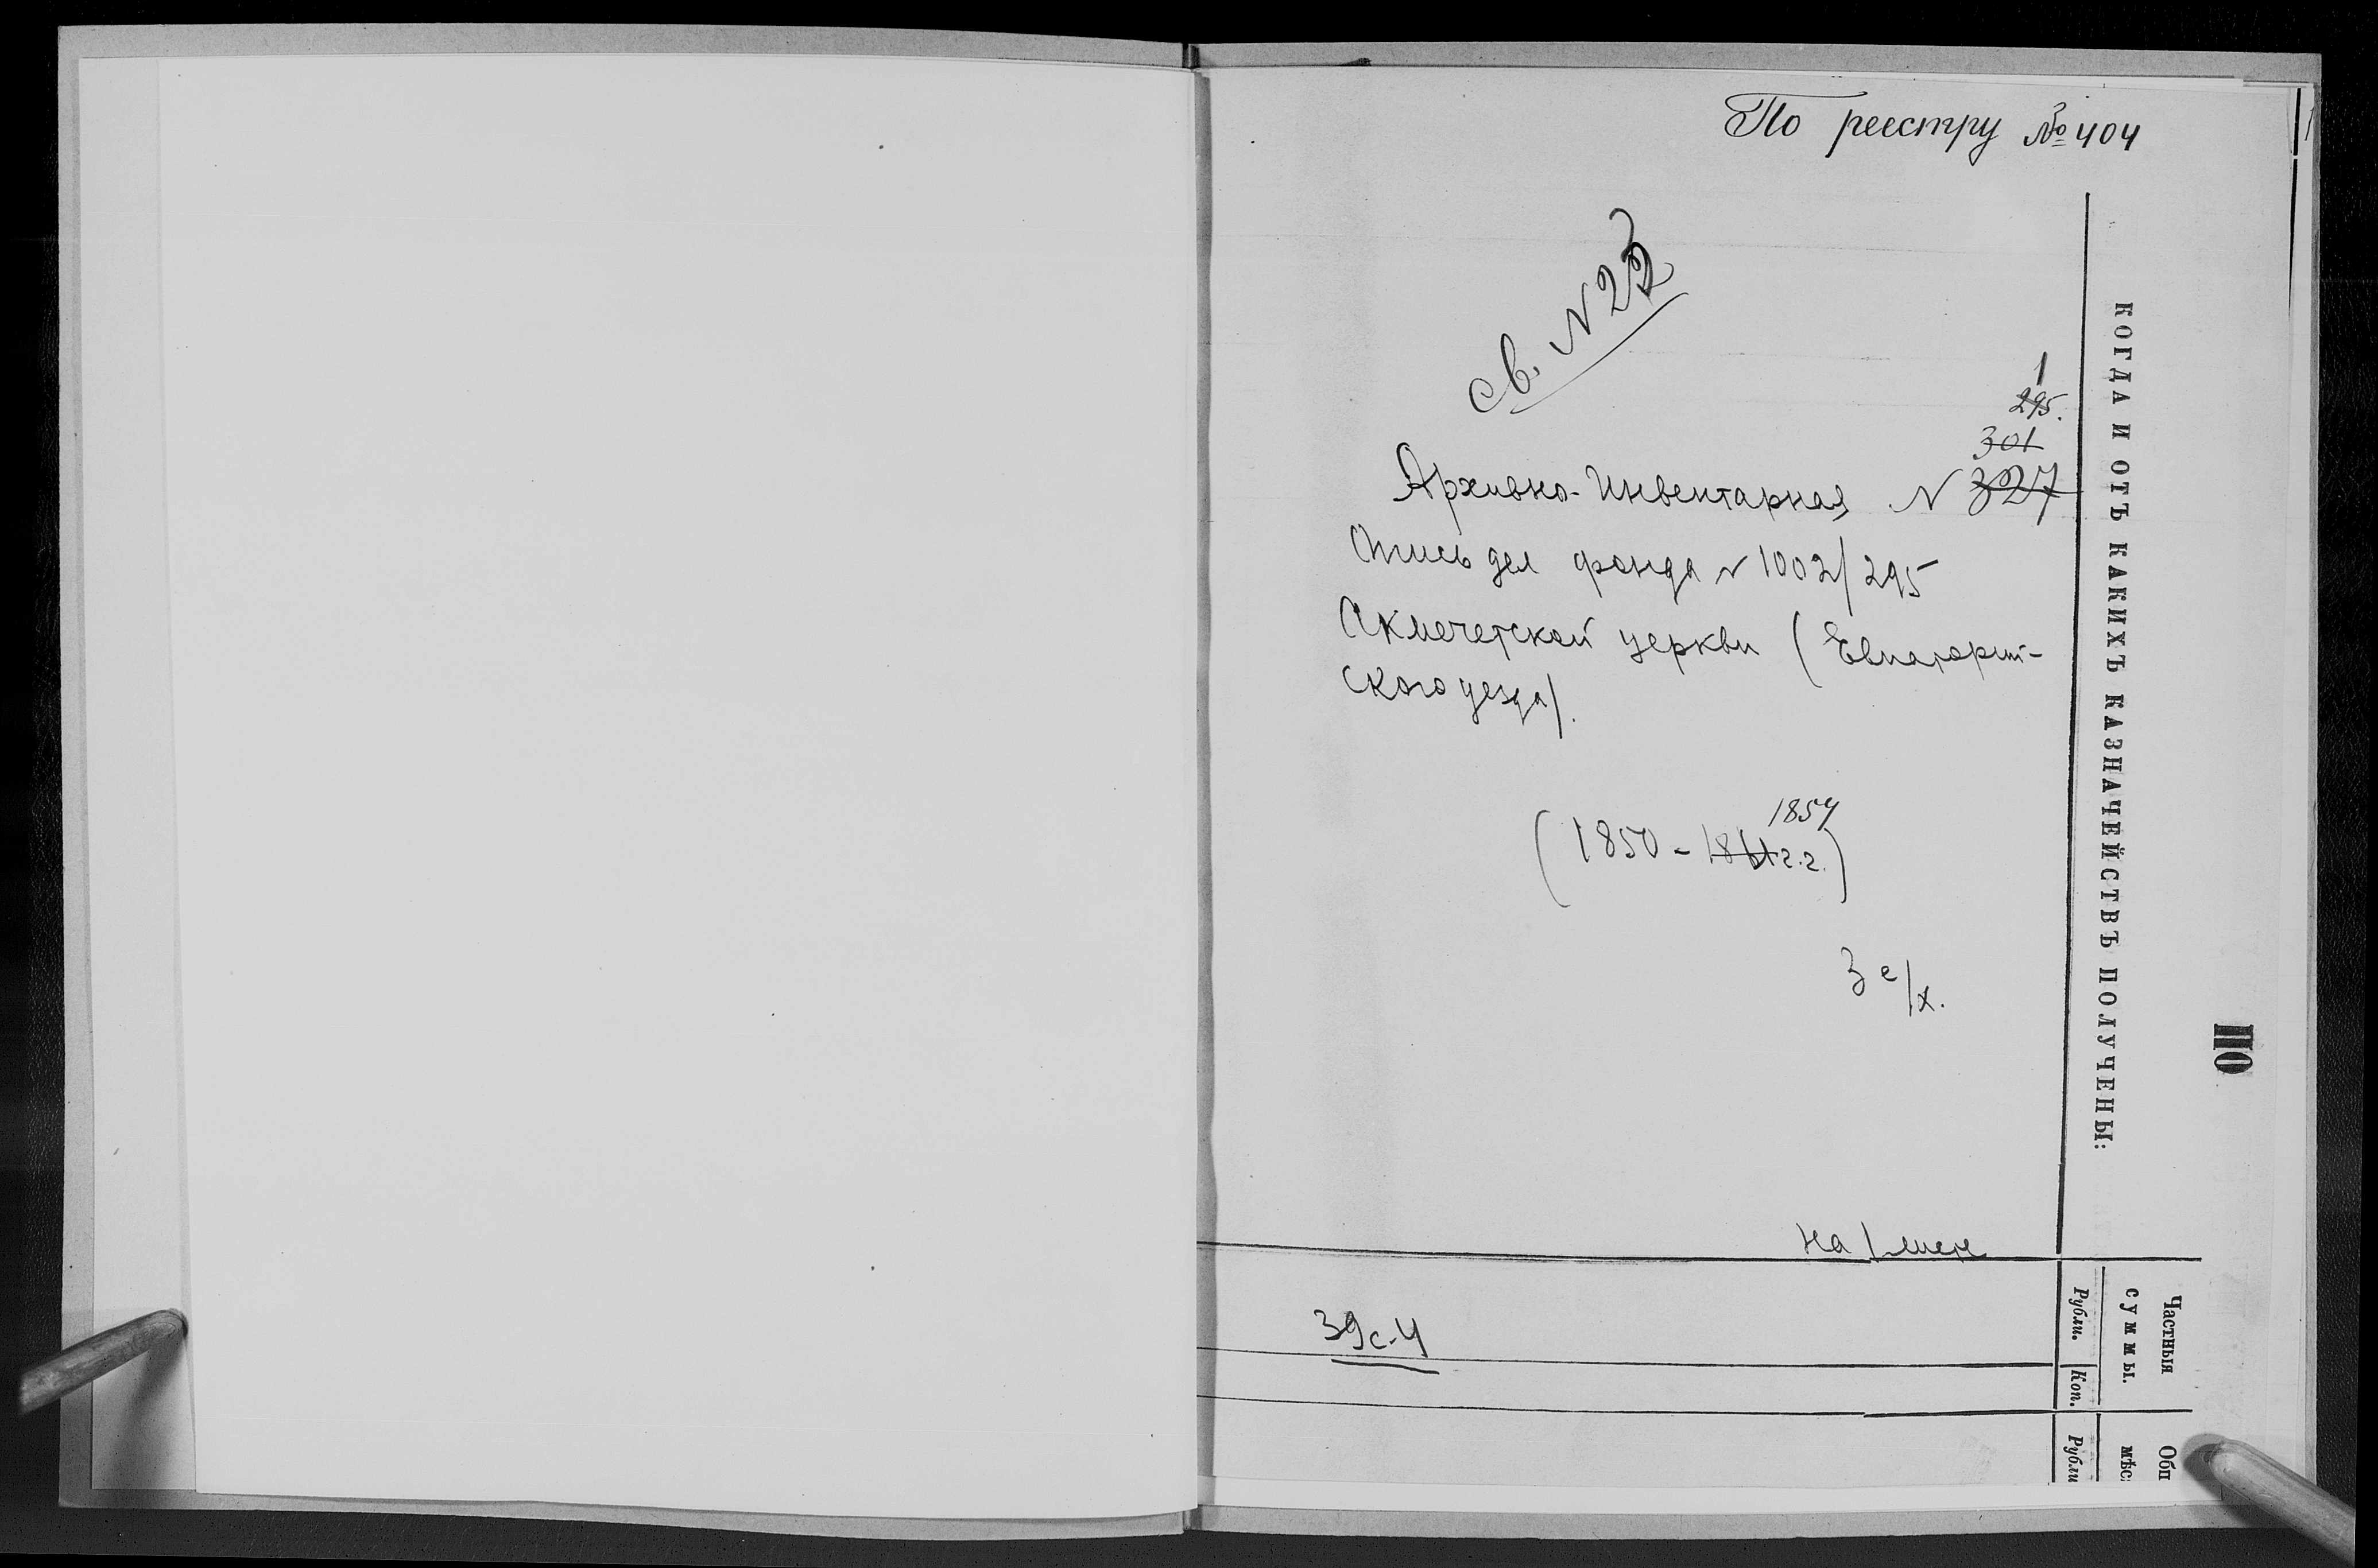 По реестру № 404
св. N 22
1
295.
301
Архивно-Инвентарная N 327
Опись дел фонда N 1002/295
Акмечетской церкви (Евпаторий-
ского уезда).
1854
(1850 - 1861 г.г.)
3 е/х.
на 1 лист
39с-4
КОГДА И ОТЪ КАКИХЪ КАЗНАЧЕЙСТВЪ ПОЛУЧЕНЫ:
ПО
Частныя
суммы.
Рубли.
Коп.
Общ
мѣс
Рубли